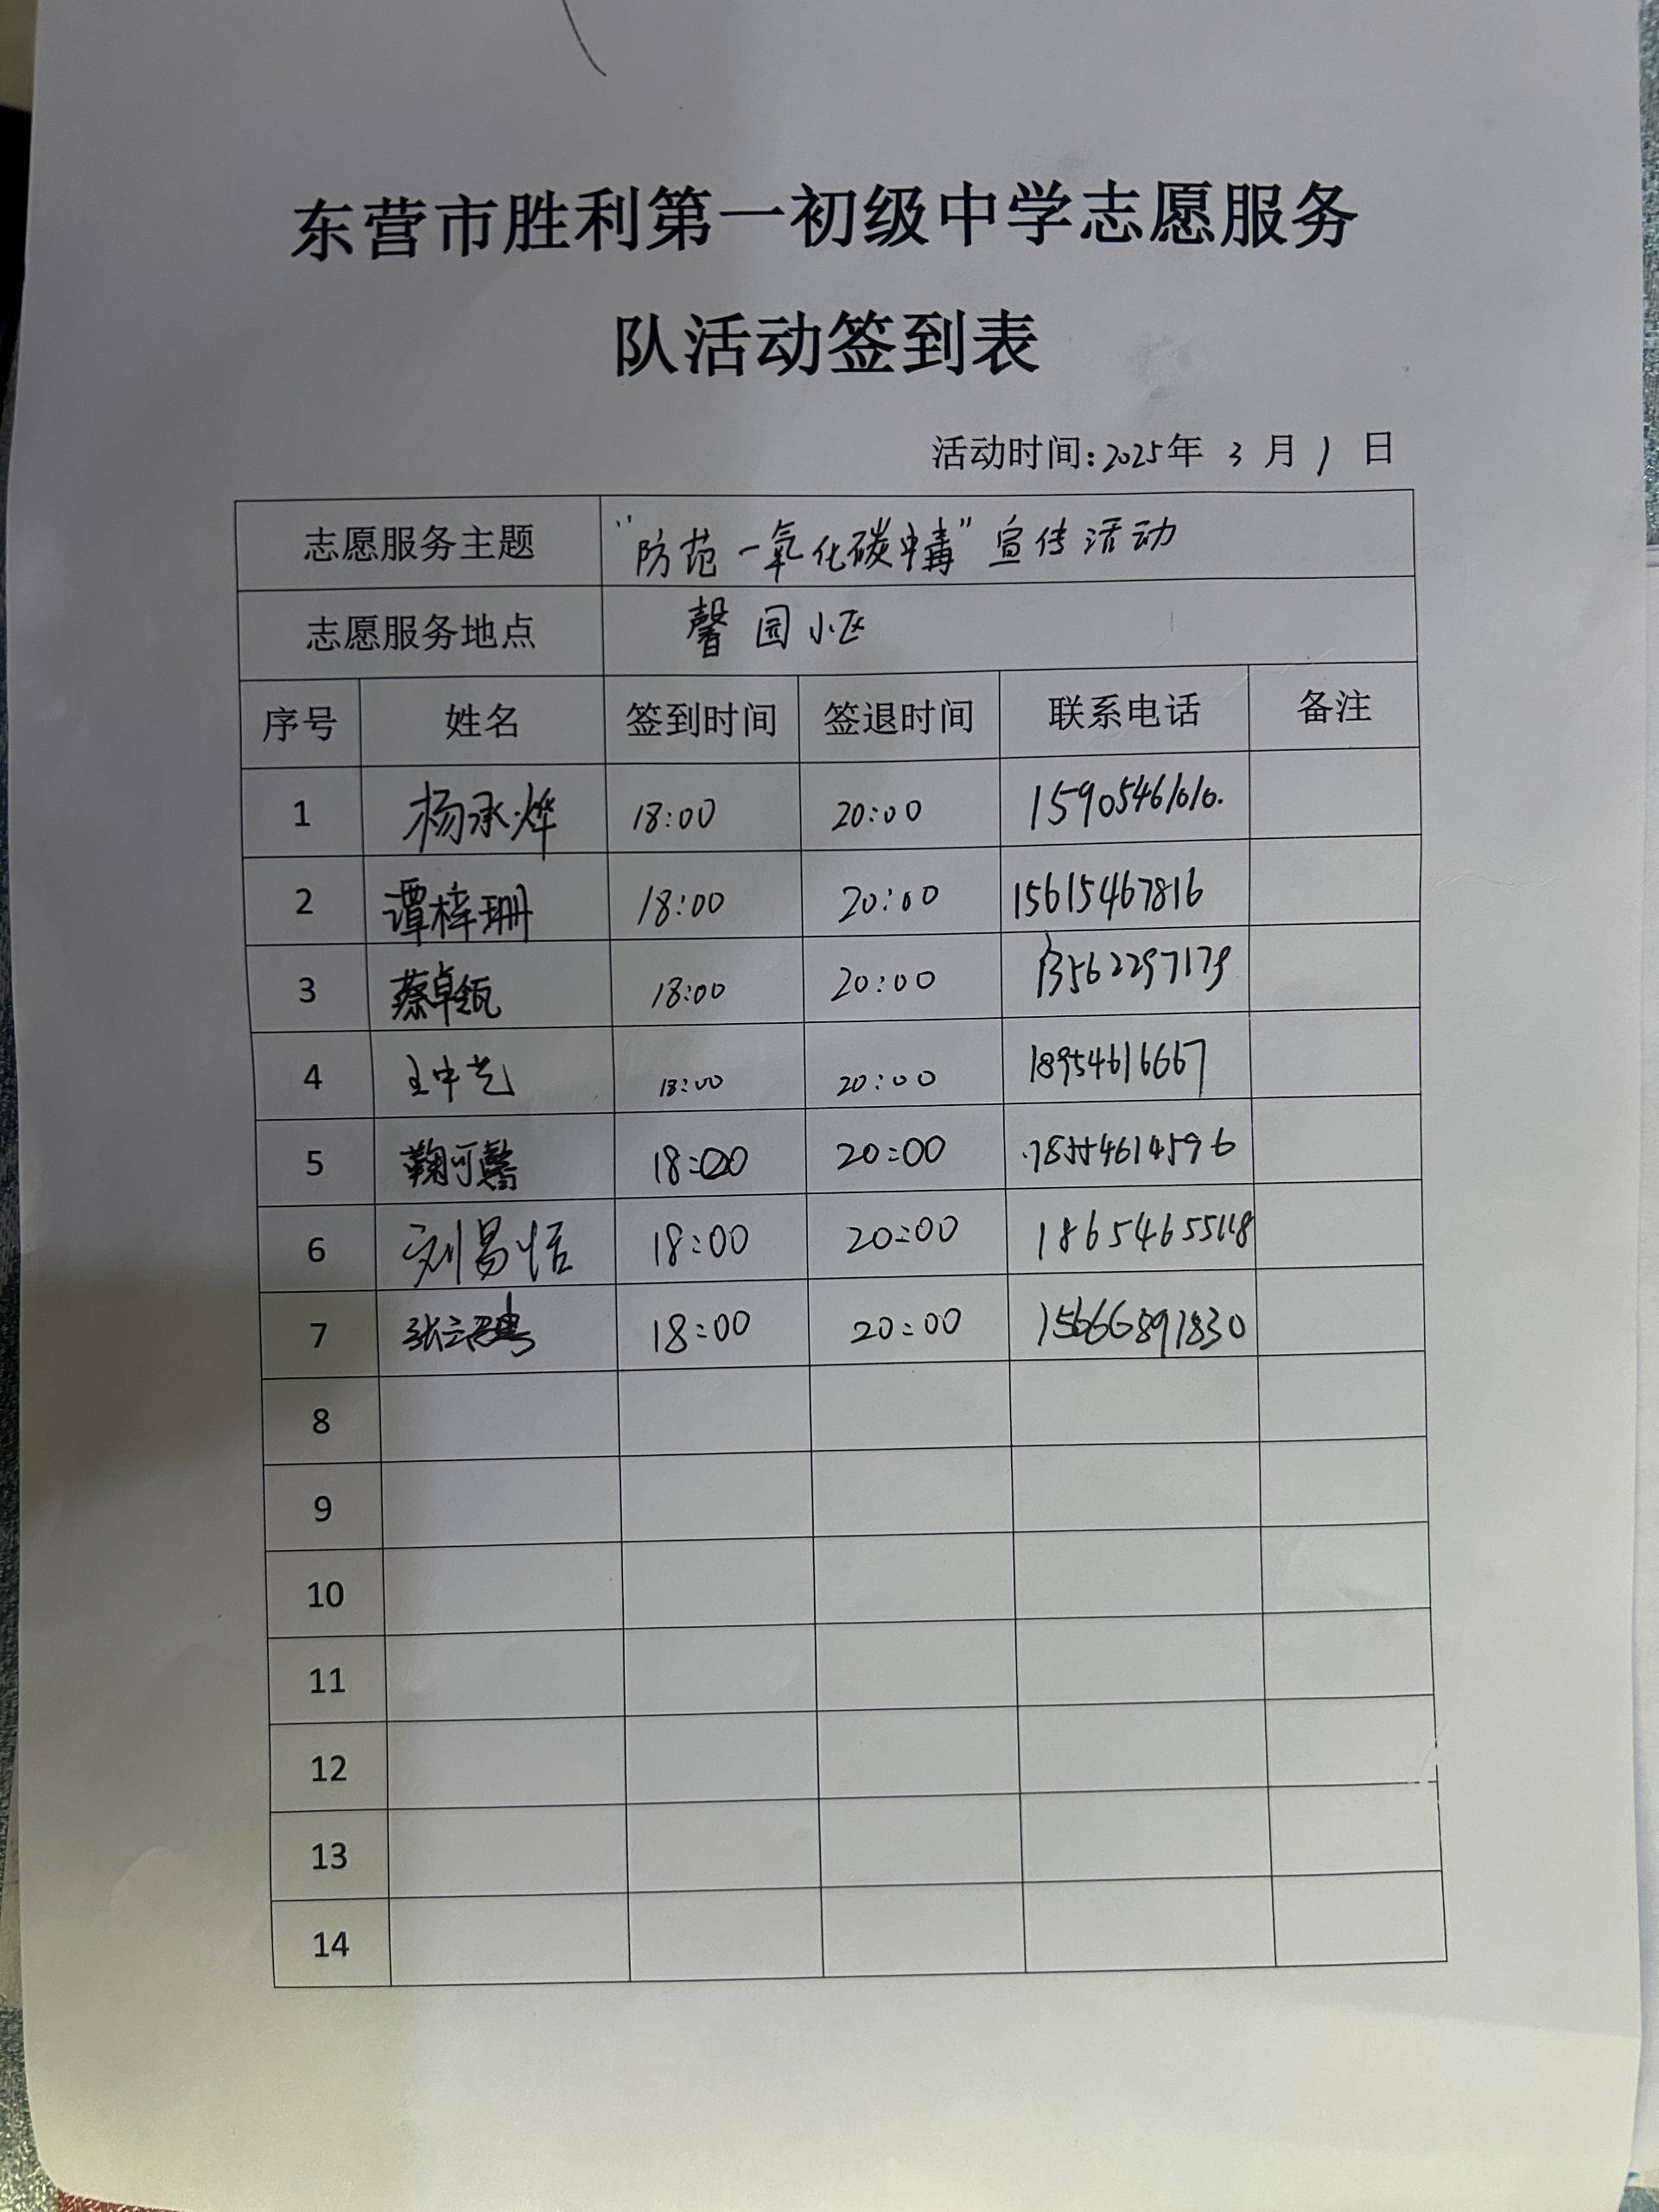 东营市胜利第一初级中学志愿服务
队活动签到表
活动时间:2025年 3 月 1 日
志愿服务主题 “防范一氧化碳中毒”宣传活动
志愿服务地点 馨园小区
序号 姓名 签到时间 签退时间 联系电话 备注
1 杨承烨 18:00 20:00 15905461616.
2 谭梓珊 18:00 20:00 15615467816
3 蔡卓甄 18:00 20:00 13562297179
4 王中艺 18:00 20:00 18954616667
5 鞠可馨 18:00 20:00 18554614596
6 刘易恬 18:00 20:00
7 18:00 20:00 15666891830
8
9
10
11
12
13
14